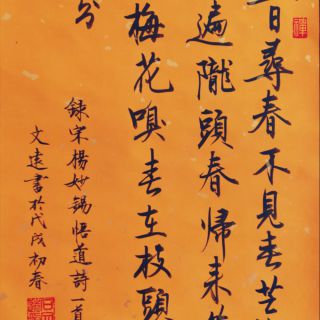 日尋春不見春芒
遍隴頭春歸來
梅花嗅春在枝頭
分
錄宋楊妙錫悟道詩一首
文遠書於戊戌初春